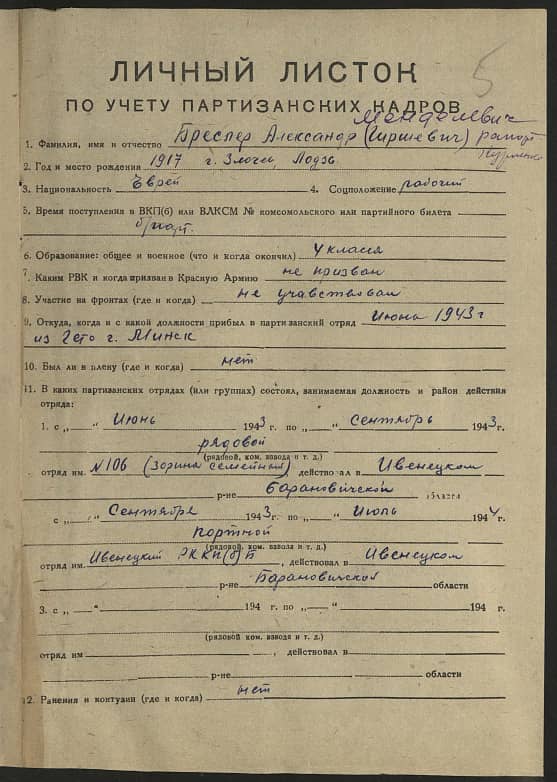 5
ЛИЧНЫЙ ЛИСТОК
ПО УЧЕТУ ПАРТИЗАНСКИХ КАДРОВ
Менделевич
1. Фамилия, имя и отчество Бреслер Александр (Гиршевич) рапорт
2. Год и место рождения 1917 г. Злочев, Лодзь
3. Национальность Еврей 4. Соцположение рабочий
5. Время поступления в ВКП(б) или ВЛКСМ № комсомольского или партийного билета
б/парт.
6. Образование: общее и военное (что и когда окончил) 4 класса
7. Каким РВК и когда призван в Красную Армию не призван
8. Участие на фронтах (где и когда) не учавствовал
9. Откуда, когда и с какой должности прибыл в партизанский отряд Июна 1943 г
из Гето г. Минск
10. Был ли в плену (где и когда) нет
11. В каких партизанских отрядах (или группах) состоял, занимаемая должность и район действия
отряда:
1. с „ “ Июнь 1943 г. по „ “ Сентябрь 1943.
рядовой
(рядовой, ком. взвода и т. д.)
отряд им. № 106 (Зорина семейный) действовал в Ивенецком
р-не Барановичской области
с „ “ Сентябре 1943 г. по „ “ Июль 1944 г.
портной
(рядовой, ком. взвода и т. д.)
отряд им. Ивенецкий РККП(б)Б, действовал в Ивенецком
р-не Барановичской области
3. с „ “ 194 г. по „ “ 194 г.
(рядовой, ком. взвода и т. д.)
отряд им , действовал в
р-не области
12. Ранения и контузии (где и когда) нет